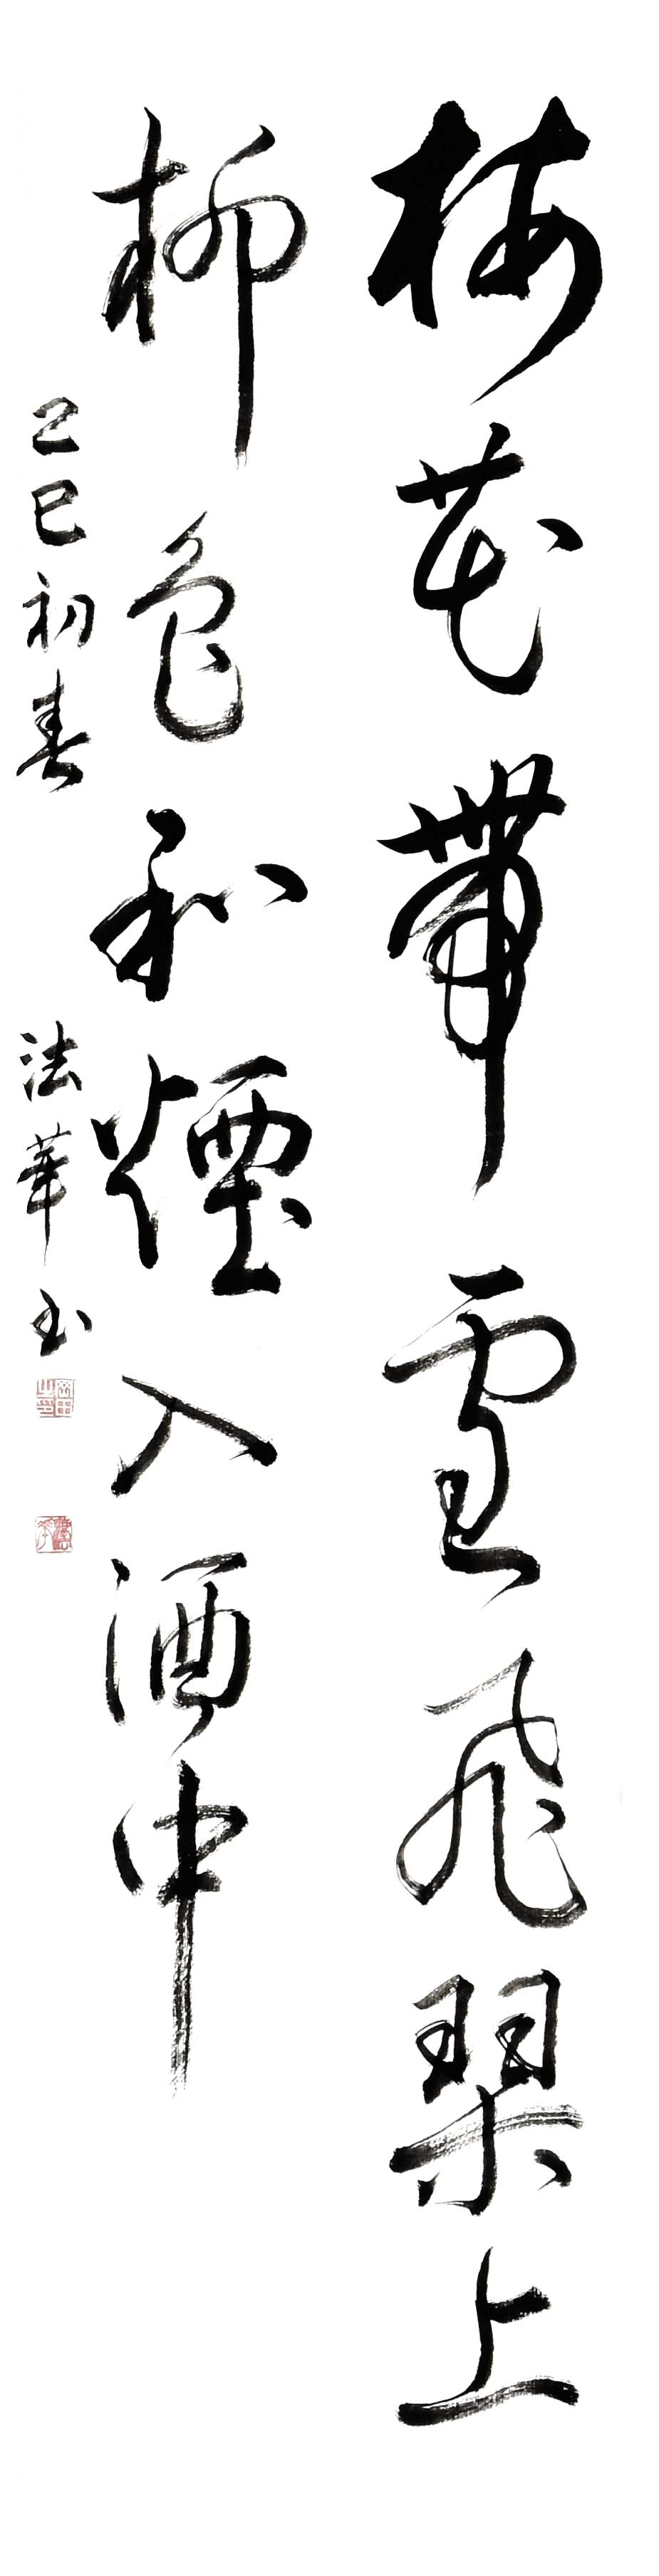 梅花帯雪飛琴上
柳色和煙入酒中
乙巳初春 法華書